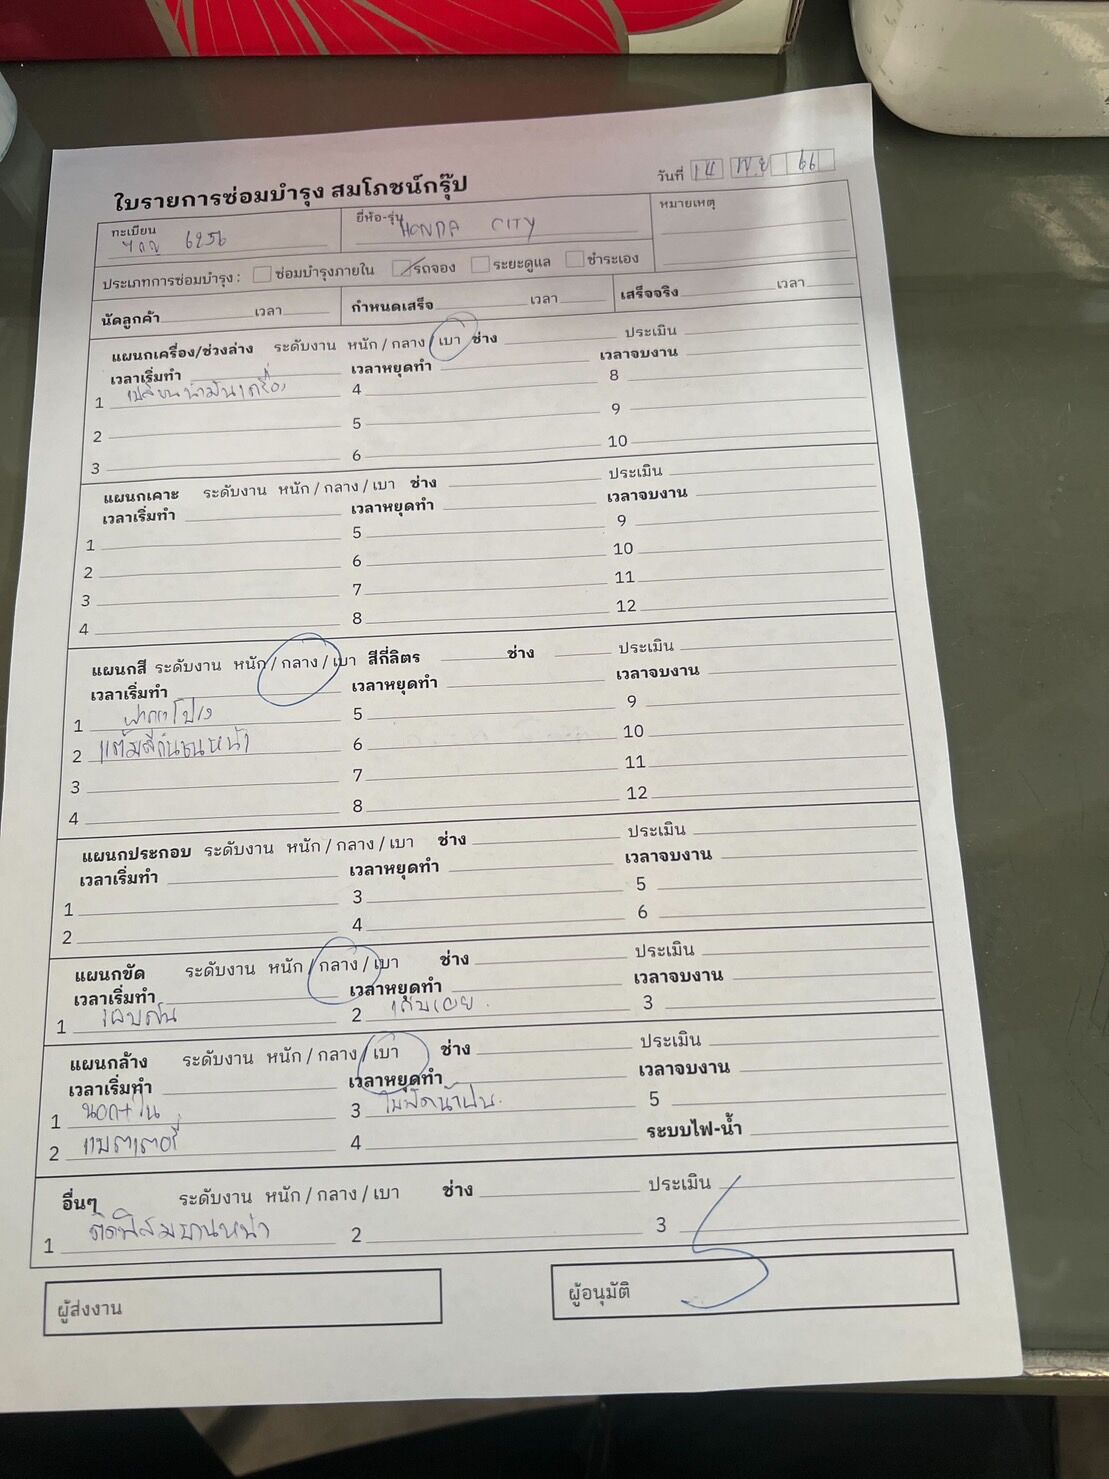 ใบรายการซ่อมบำรุง สมโภชน์กรุ๊ป
วันที่ 14 พ.ย 66
ทะเบียน 6256
ยี่ห้อ-รุ่น HONDA CITY
หมายเหตุ
ประเภทการซ่อมบำรุง : ซ่อมบำรุงภายใน รถจอง ระยะดูแล ชำระเอง
นัดลูกค้า เวลา กำหนดเสร็จ เวลา เสร็จจริง เวลา
แผนกเครื่อง/ช่วงล่าง ระดับงาน หนัก / กลาง / เบา ช่าง ประเมิน
เวลาเริ่มทำ เวลาหยุดทำ เวลาจบงาน
1 เปลี่ยนน้ำมันเครื่อง 4 8
2 5 9
3 6 10
แผนกเคาะ ระดับงาน หนัก / กลาง / เบา ช่าง ประเมิน
เวลาเริ่มทำ เวลาหยุดทำ เวลาจบงาน
1 5 9
2 6 10
3 7 11
4 8 12
แผนกสี ระดับงาน หนัก / กลาง / เบา สีกี่ลิตร ช่าง ประเมิน
เวลาเริ่มทำ เวลาหยุดทำ เวลาจบงาน
1 ฝากระโปรง 5 9
2 แต้มสีกันชนหน้า 6 10
3 7 11
4 8 12
แผนกประกอบ ระดับงาน หนัก / กลาง / เบา ช่าง ประเมิน
เวลาเริ่มทำ เวลาหยุดทำ เวลาจบงาน
1 3 5
2 4 6
แผนกขัด ระดับงาน หนัก / กลาง / เบา ช่าง ประเมิน
เวลาเริ่มทำ เวลาหยุดทำ เวลาจบงาน
1 2 3
แผนกล้าง ระดับงาน หนัก / กลาง / เบา ช่าง ประเมิน
เวลาเริ่มทำ เวลาหยุดทำ เวลาจบงาน
1 นอก+ใน 3 ใบปัดน้ำฝน. 5
2 แบตเตอรี่ 4 ระบบไฟ-น้ำ
อื่นๆ ระดับงาน หนัก / กลาง / เบา ช่าง ประเมิน
1 ติดฟิล์มบานหน้า 2 3
ผู้ส่งงาน
ผู้อนุมัติ